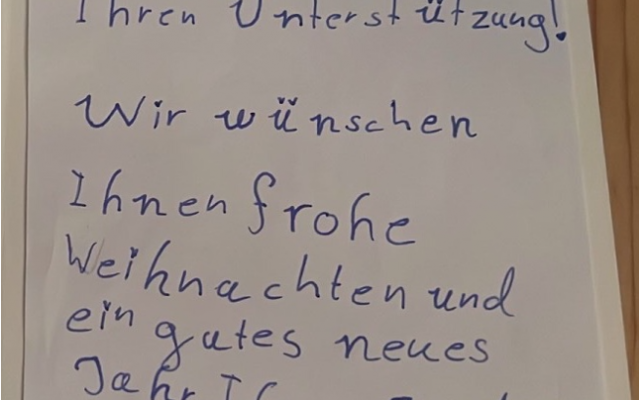 Ihren Unterstützung!
Wir wünschen
Ihnen frohe
Weihnachten und
ein gutes neues
Jahr